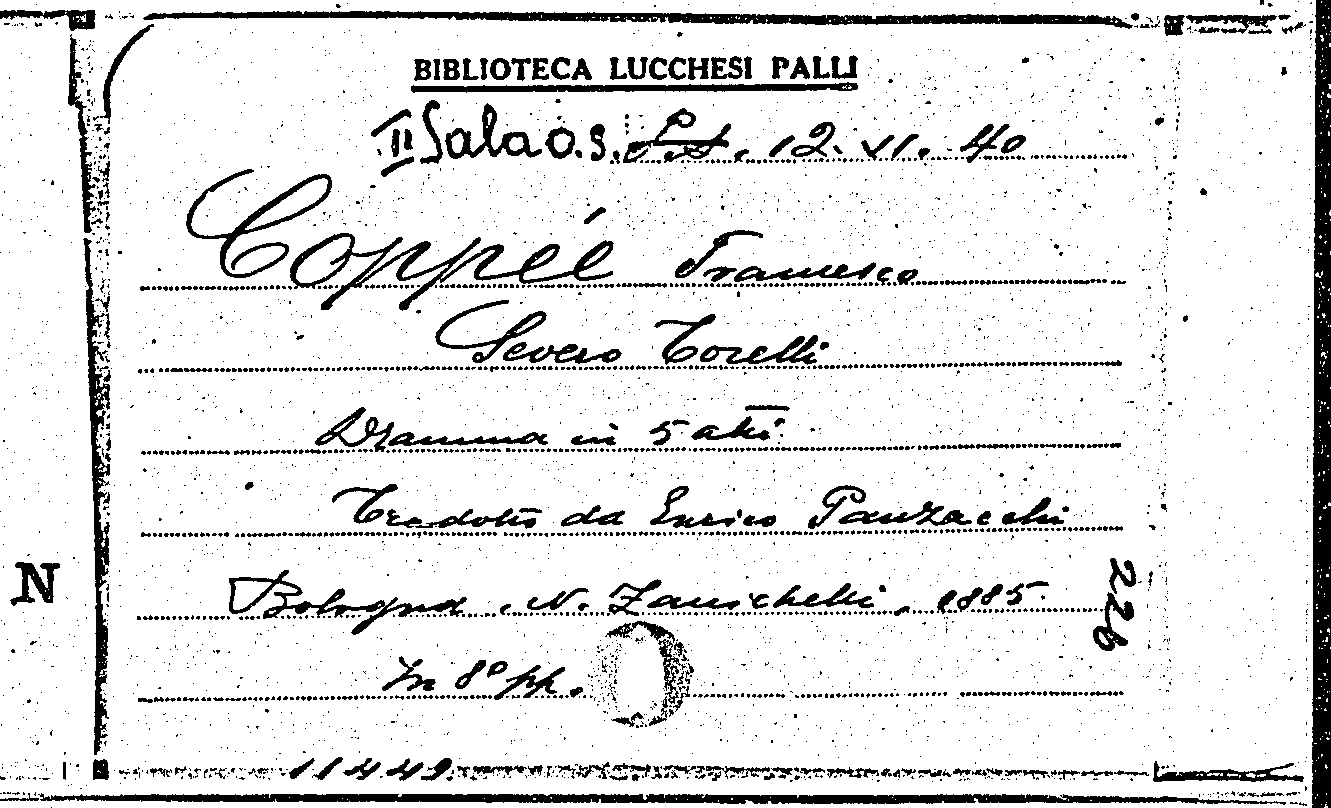 BIBLIOTECA LUCCHESI PALLI
II Sala O.S. 12. VI. 40
Coppée Francesco
Severo Torelli
Dramma in 5 atti
Tradotto da Enrico Panzacchi
Bologna, N. Zanichelli, 1885.
In 8° pp.
226
N
11449